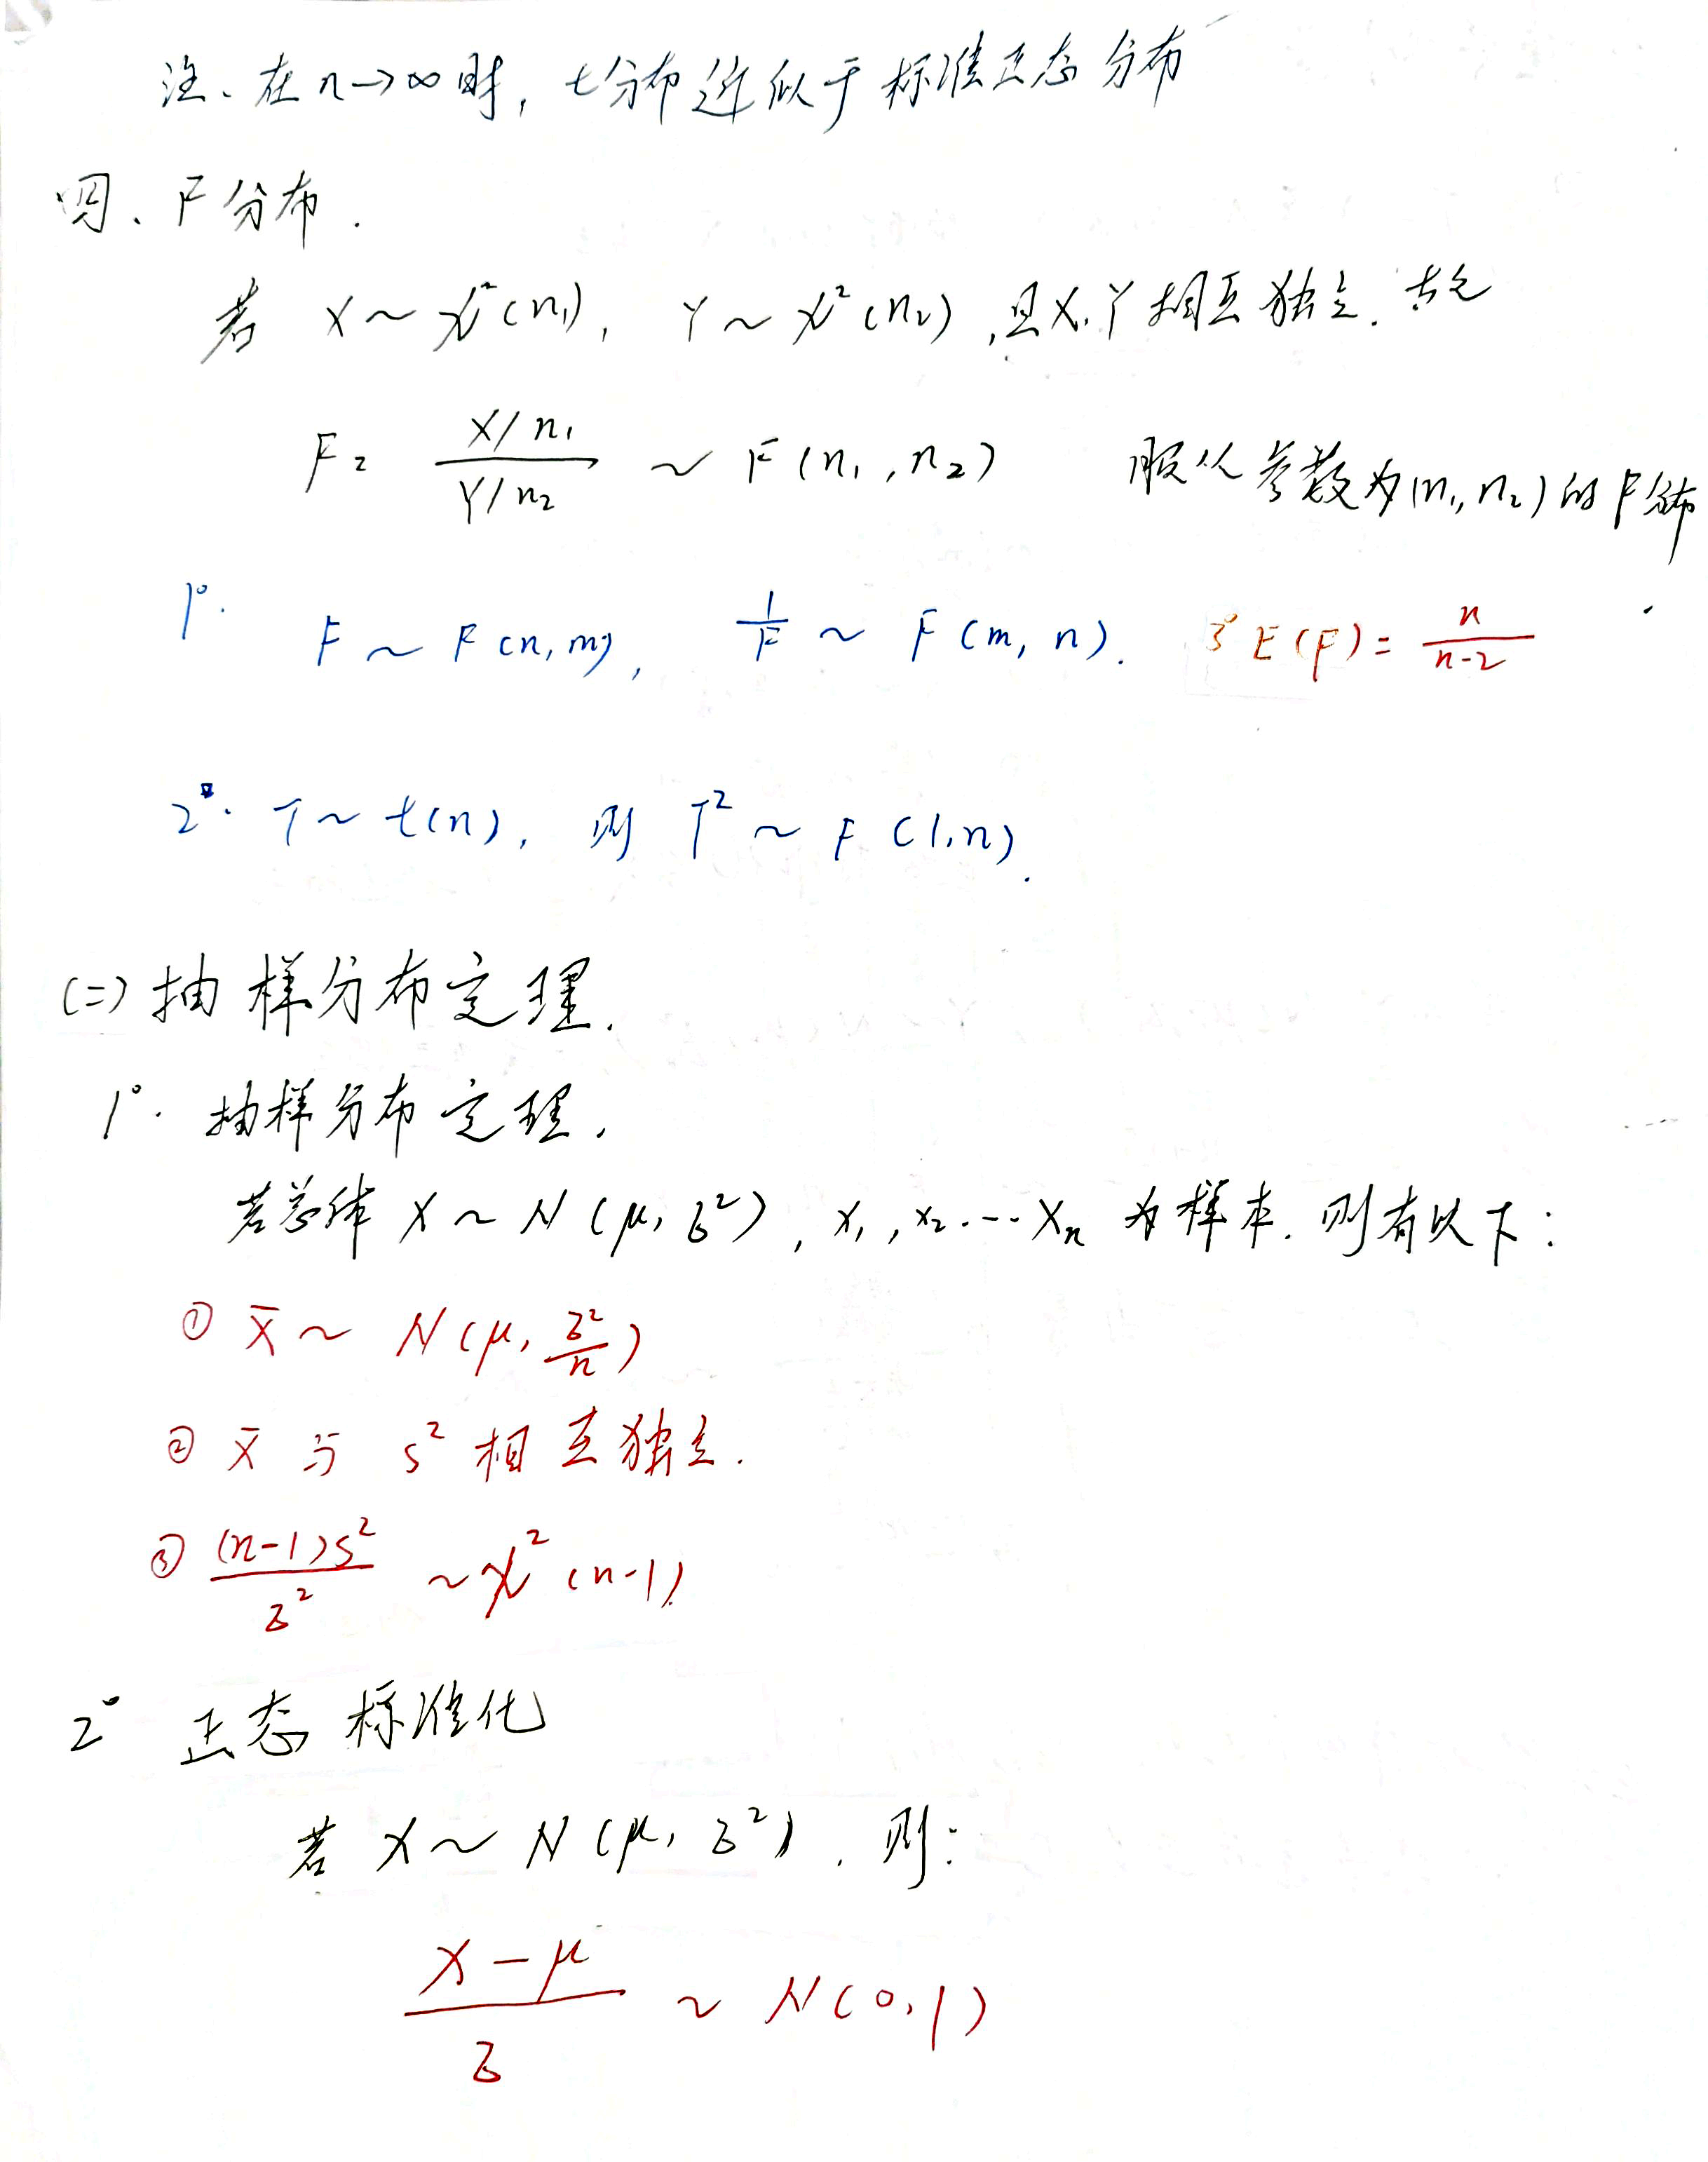 注、在n→∞时, t分布近似于标准正态分布
四、F分布.
若 X～χ²(n₁), Y～χ²(n₂),且X,Y相互独立.
F= (X/n₁)/(Y/n₂) ～ F(n₁,n₂) 服从参数为(n₁,n₂)的F分布
1°. F～F(n,m), 1/F ～ F(m,n). 3° E(F)= n/(n-2)
2°. T～t(n), 则 T²～F(1,n).
(二)抽样分布定理.
1°. 抽样分布定理.
若总体X～N(μ,σ²), x₁,x₂.…Xₙ为样本.则有以下:
① X̄～N(μ, σ²/n)
② X̄与S²相互独立.
③ (n-1)S²/σ² ～χ²(n-1)
2° 正态标准化
若X～N(μ,σ²).则:
(X-μ)/σ ～ N(0,1)